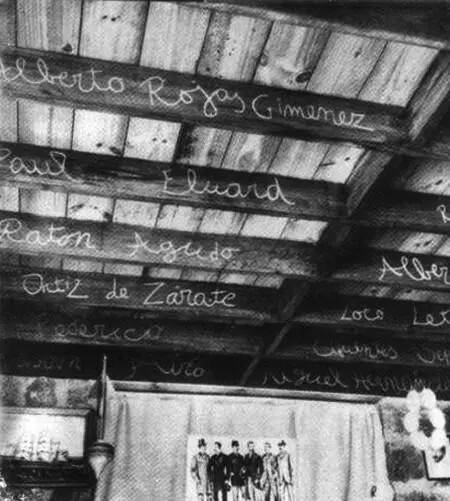 Alberto Rojas Gimenez
Paul Eluard
Raton Agudo
Alber
Ortiz de Zarate
Loco Let
Federico
Cifuentes
Miguel Hernandez